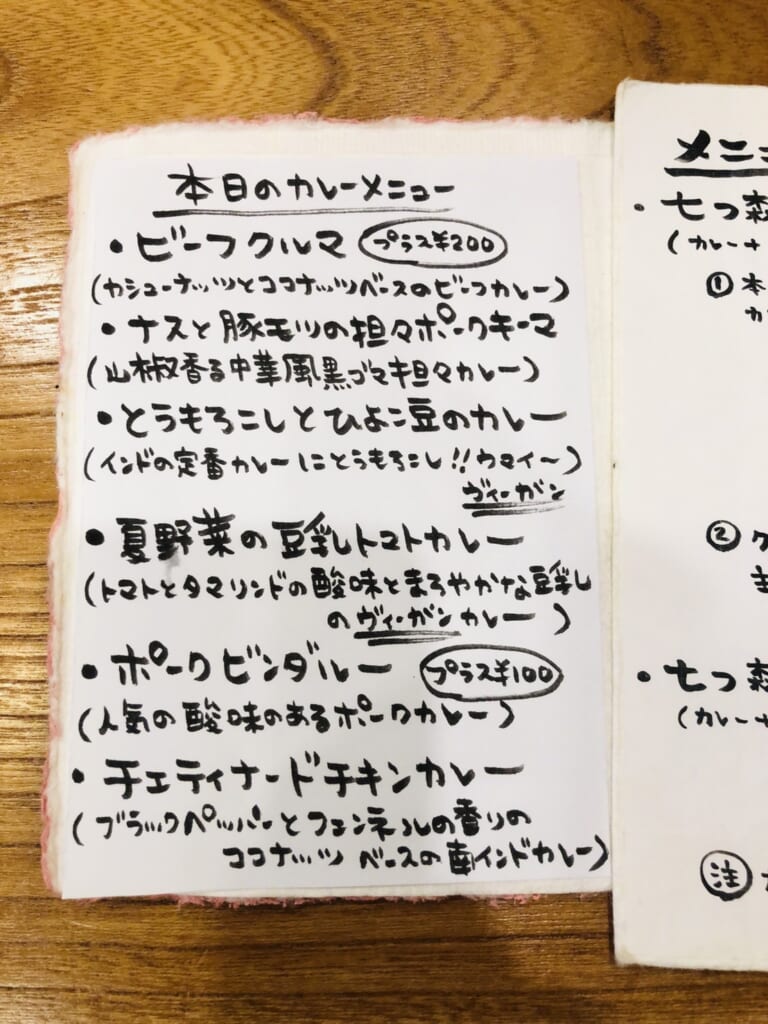 本日のカレーメニュー
・ビーフクルマ プラス¥200
(カシューナッツとココナッツベースのビーフカレー)
・ナスと豚モツの担々ポークキーマ
(山椒香る中華風黒ゴマ担々カレー)
・とうもろこしとひよこ豆のカレー
(インドの定番カレーにとうもろこし!!ウマイ〜)
ヴィーガン
・夏野菜の豆乳トマトカレー
(トマトとタマリンドの酸味とまろやかな豆乳
のヴィーガンカレー)
・ポークビンダルー プラス¥100
(人気の酸味のあるポークカレー)
・チェティナードチキンカレー
(ブラックペッパーとフェンネルの香りの
ココナッツベースの南インドカレー)
メニュ
・七つ森
(カレー+
① 本
カ
② ク
主
・七つ森
(カレー+
注